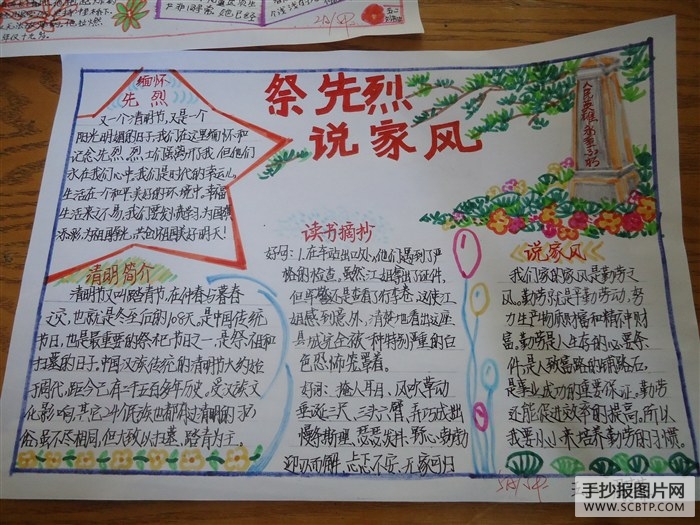 祭先烈
说家风
人民英雄永垂不朽
缅怀
先烈
又一个清明节，又是一个
阳光明媚的日子我们在这里缅怀和
记念先烈。烈士们虽离开了我，但他们
永在我们心中，我们是时代的幸运儿，
生活在一个和平美好的环境中，幸福
生活来之不易，我们要好好
添彩，为祖国争光，共创祖国美好明天！
清明简介
清明节又叫踏青节，在仲春与暮春
之交，也就是冬至后的108天，是中国传统
节日，也是最重要的祭祀节日之一，是祭祖和
扫墓的日子。中国汉族传统的清明节大约始
于周代，距今已有二千五百多年历史。受汉族文
化影响，其它24个民族也都有过清明的习
俗。虽不尽相同，但大致以扫墓、踏青为主。
读书摘抄
好句：1.在车动出口处，他们遇到了严
格的检查，虽然江姐拿出了证件，
但军警还是查看了行李卷，这使江
姐感到意外，清楚地看出这座
县城完全被一种特别严重的白
色恐怖笼罩着。
好词：掩人耳目、风吹草动
垂涎三尺、三头六臂、弄巧成拙
慢条斯理、琵琶发抖、野心勃勃
迎刃而解、忐忑不安、无家可归
说家风
我们家的家风是勤劳之
风。勤劳就是辛勤劳动，努
力生产物质财富和精神财
富。勤劳是人生存的必要条
件，是人致富路的铺路石，
是事业成功的重要保证，勤劳
还能促进效率的提高。所以
我要从小来培养勤劳的习惯。
手抄报图片网
WWW.SCBTP.COM